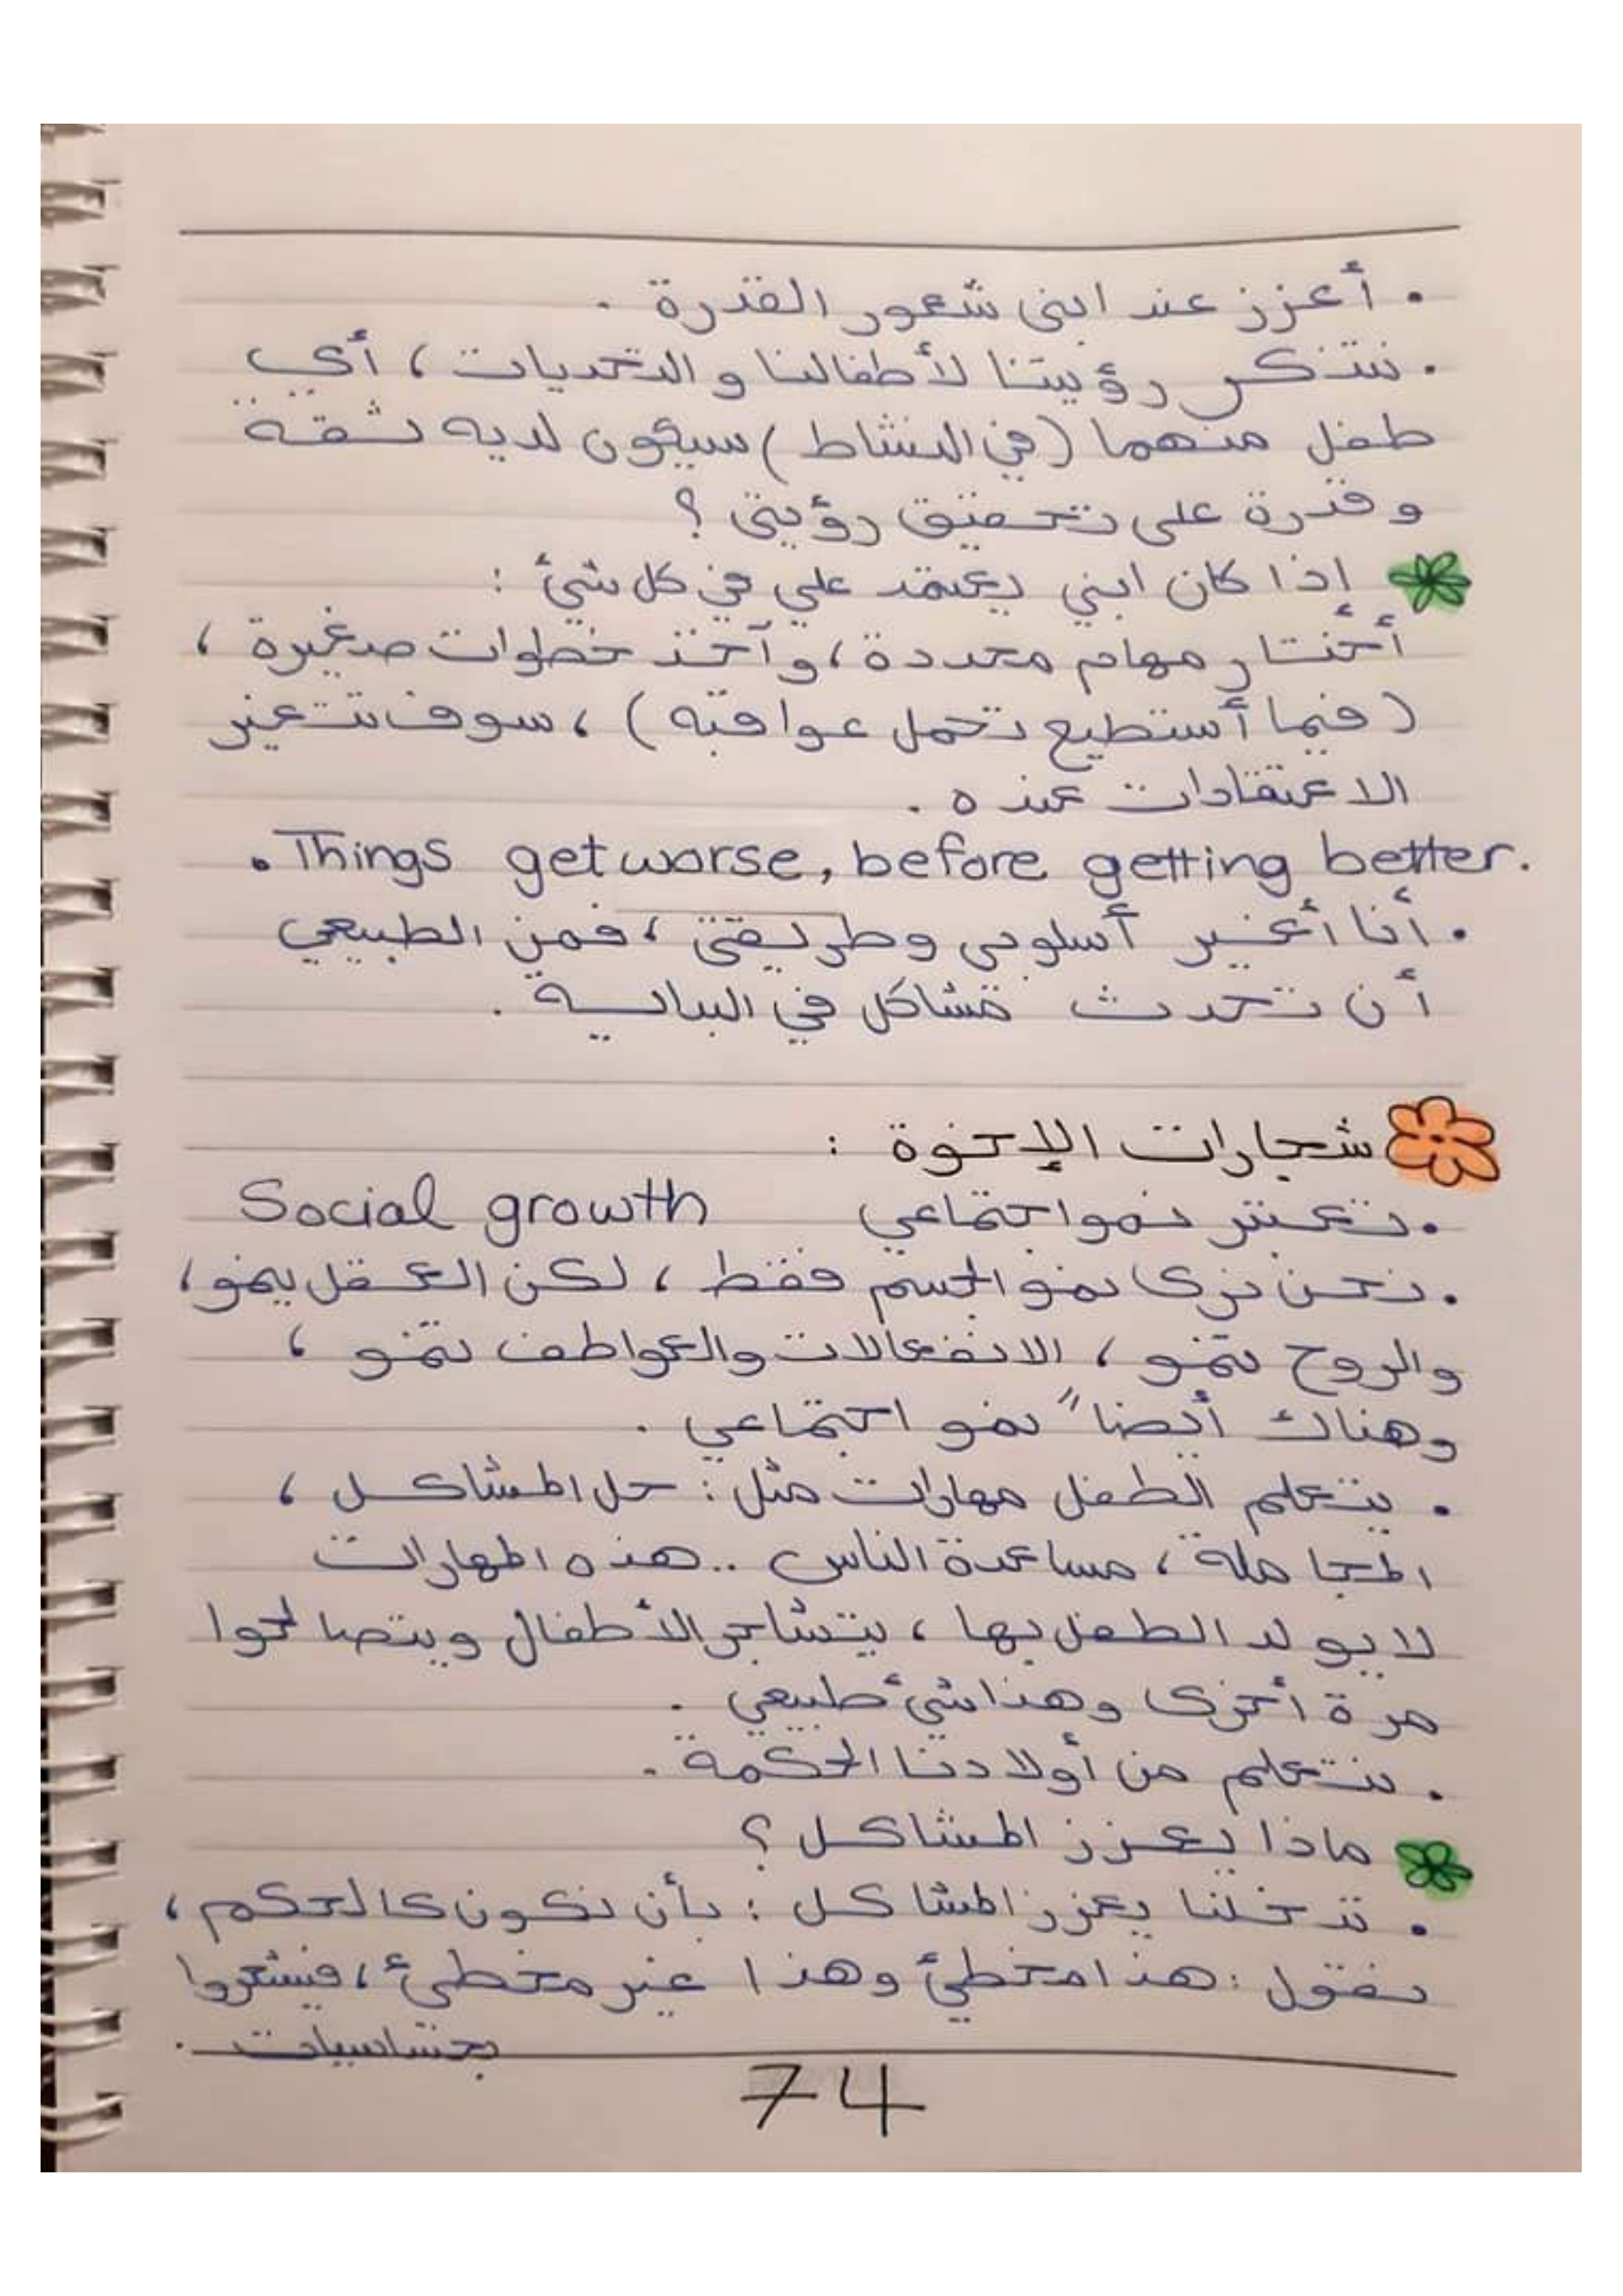 • أعزز عند ابني شعور القدرة .
• نتذكر رؤيتنا لأطفالنا و التحديات ، أي
طفل منهما (في النشاط) سيكون لديه ثقة
و قدرة على تحقيق رؤيتي ؟
إذا كان ابني يعتمد علي في كل شيئ :
أختار مهام محددة ، و آخذ خطوات صغيرة ،
( فيما أستطيع تحمل عواقبه ) ، سوف تتغير
الاعتقادات عنده .
• Things get worse, before getting better.
• أنا أغير أسلوبي وطريقتي ، فمن الطبيعي
أن تحدث مشاكل في البداية .
شجارات الإخوة :
• تعتبر نمو اجتماعي Social growth
• نحن نرى نمو الجسم فقط ، لكن العقل ينمو ،
والروح تنمو ، الانفعالات والعواطف تنمو ،
وهناك أيضاً نمو اجتماعي .
• يتعلم الطفل مهارات مثل : حل المشاكل ،
المجاملة ، مساعدة الناس .. هذه المهارات
لا يولد الطفل بها ، يتشاجر الأطفال ويتصالحوا
مرة أخرى وهذا شيئ طبيعي .
• نتعلم من أولادنا الحكمة .
ماذا يعزز المشاكل ؟
• تدخلنا يعزز المشاكل : بأن نكون كالحكم ،
نقول : هذا مخطئ وهذا غير مخطئ ، فيشعروا
بحساسيات .
74